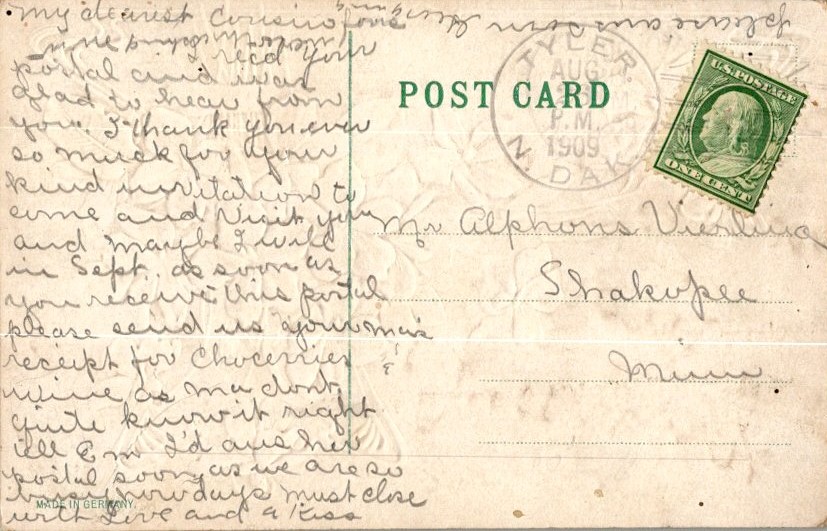 My dearest Cousin
I recd your
postal and was
glad to hear from
you. I thank you ever
so much for your
kind invitation to
come and visit you
and maybe I will
in Sept. as soon as
you receive this postal
please send us your ma's
receipt for Chocerries
wine as ma dont
quite know it right
tell Em I'd ans her
postal soon as we are so
busy nowdays must close
with Love and a Kiss
please ans soon
POST CARD
TYLER.
AUG
P.M.
1909
N. DAK.
U.S. POSTAGE
ONE CENT
Mr Alphons Vierling
Shakopee
Minn
MADE IN GERMANY.